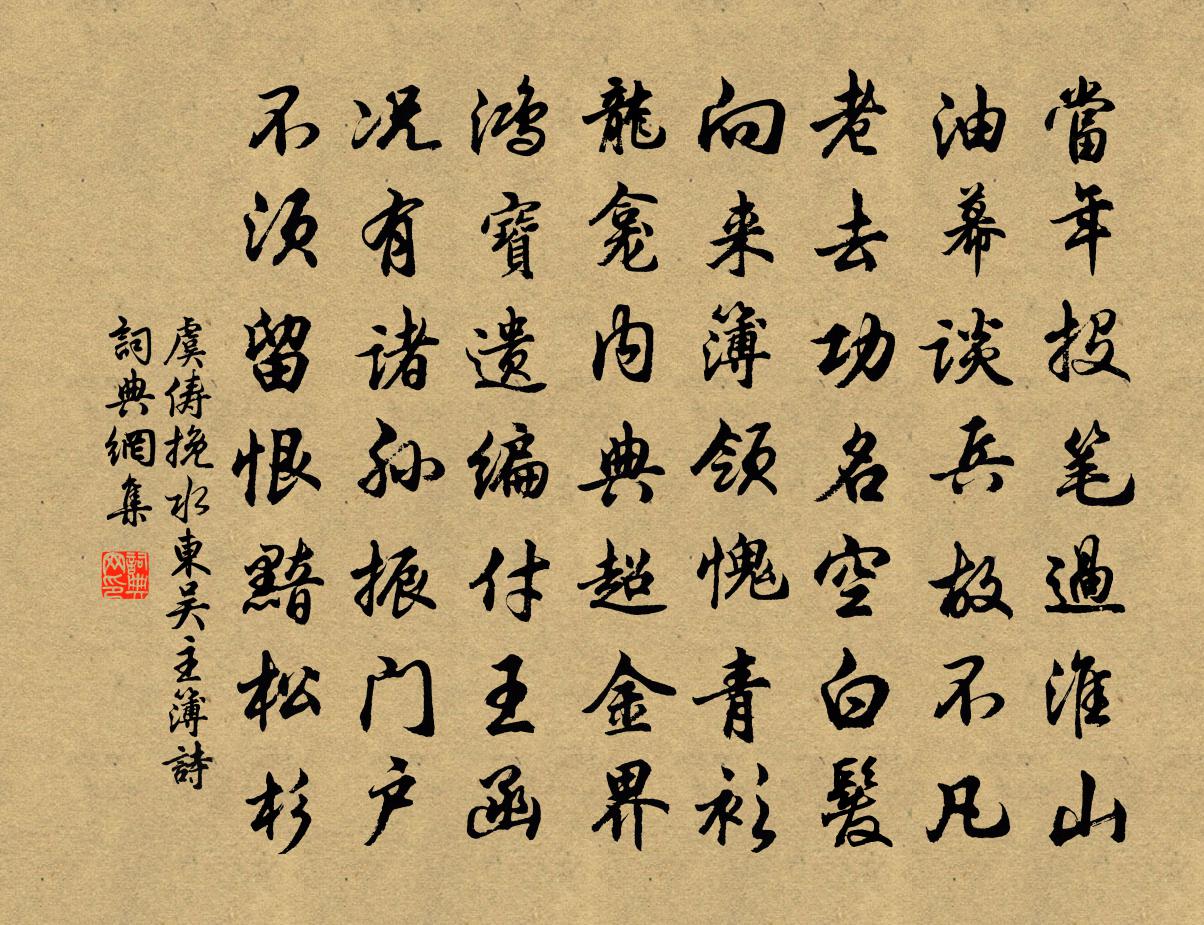 當年投笔過淮山
油幕談兵故不凡
老去功名空白髮
向来簿領愧青衫
龍龛内典超金界
鴻寶遗编付王函
况有诸孙振门户
不须留恨黯松杉
虞儔挽水東吴主簿詩
詞典網集
詞典网印